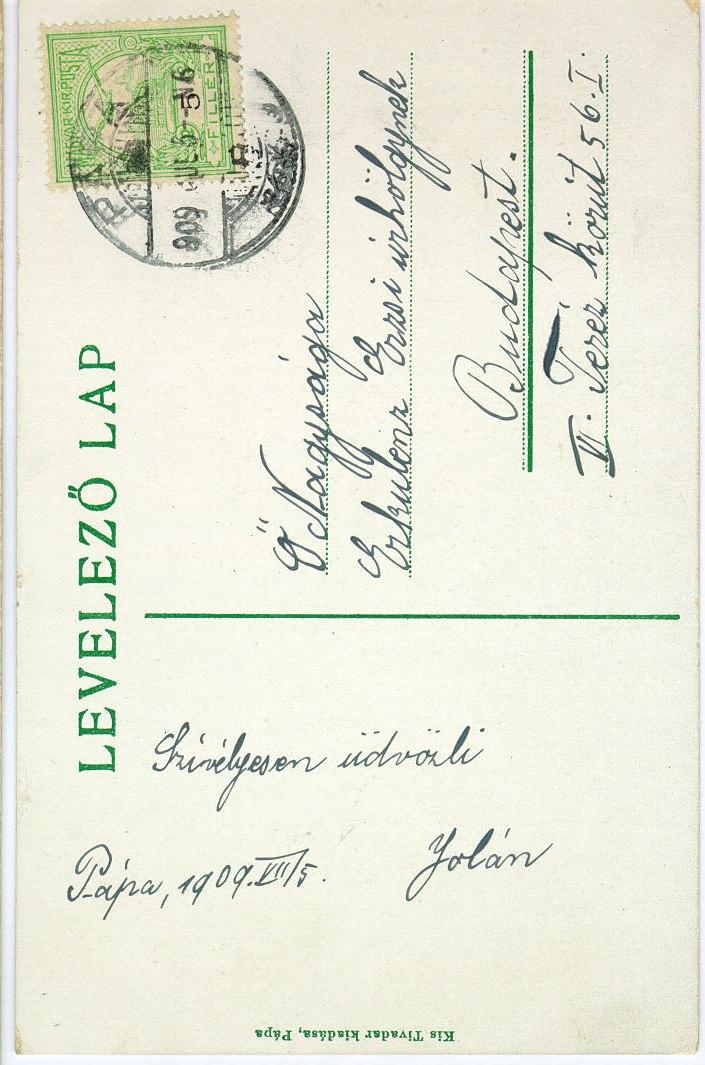 LEVELEZŐ LAP
MAGYAR KIR. POSTA
5
FILLÉR
PÁPA
909
Ő Nagysága
Erzsi úrhölgynek
Budapest.
VI. Teréz körút 56. I.
Szívélyesen üdvözli
Jolán
Pápa, 1909. VII/5.
Kis Tivadar kiadása, Pápa